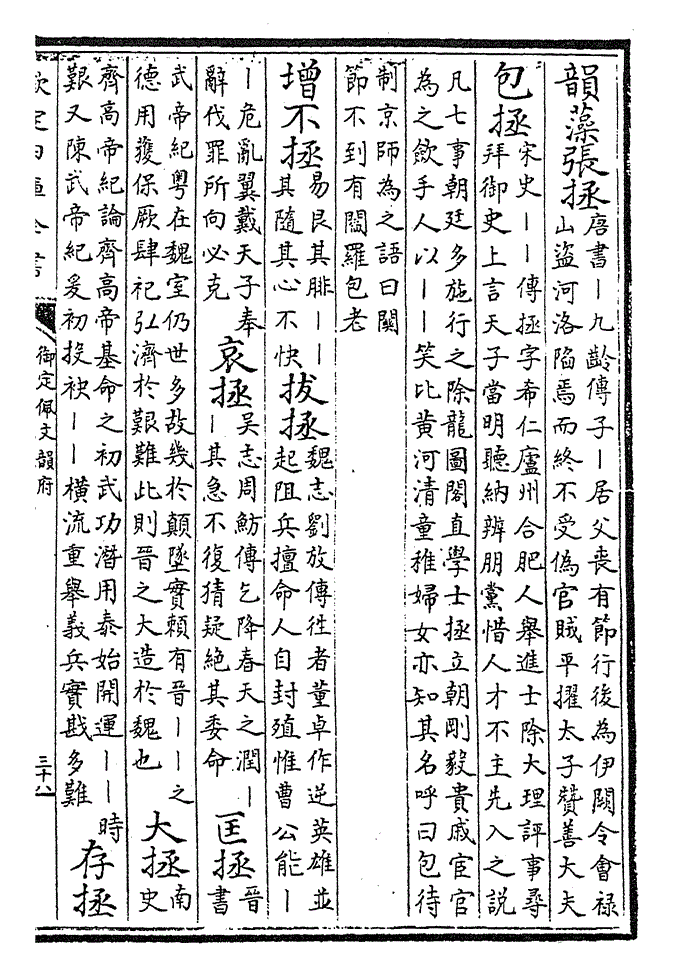 韻藻張拯唐書丨九齡傳子丨居父喪有節行後為伊闕令會禄
山盜河洛陷焉而終不受偽官賊平擢太子贊善大夫
包拯宋史丨丨傳拯字希仁廬州合肥人舉進士除大理評事尋
拜御史上言天子當明聽納辨朋黨惜人才不主先入之説
凡七事朝廷多施行之除龍圖閣直學士拯立朝剛毅貴戚宦官
為之歛手人以丨丨笑比黃河清童稚婦女亦知其名呼曰包待
制京師為之語曰闗
節不到有閻羅包老
增不拯易艮其腓丨丨
其隨其心不快
拔拯魏志劉放傳徃者董卓作逆英雄並
起阻兵擅命人自封殖惟曹公能丨
丨危亂翼戴天子奉
辭伐罪所向必克
哀拯吳志周魴傳乞降春天之潤丨
丨其急不復猜疑絶其委命
匡拯晉
書
武帝紀粤在魏室仍世多故幾於顛墜實賴有晉丨丨之
德用獲保厥肆祀弘濟於艱難此則晉之大造於魏也
大拯南
史
齊高帝紀論齊高帝基命之初武功潛用泰始開運丨丨時
艱又陳武帝紀爰初投袂丨丨橫流重舉義兵實戡多難
存拯
欽定四庫全書
御定佩文韻府
三十八